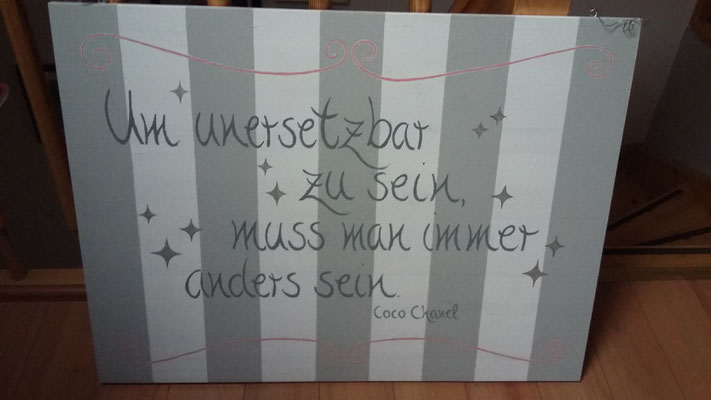 Um unersetzbar
zu sein,
muss man immer
anders sein.
Coco Chanel